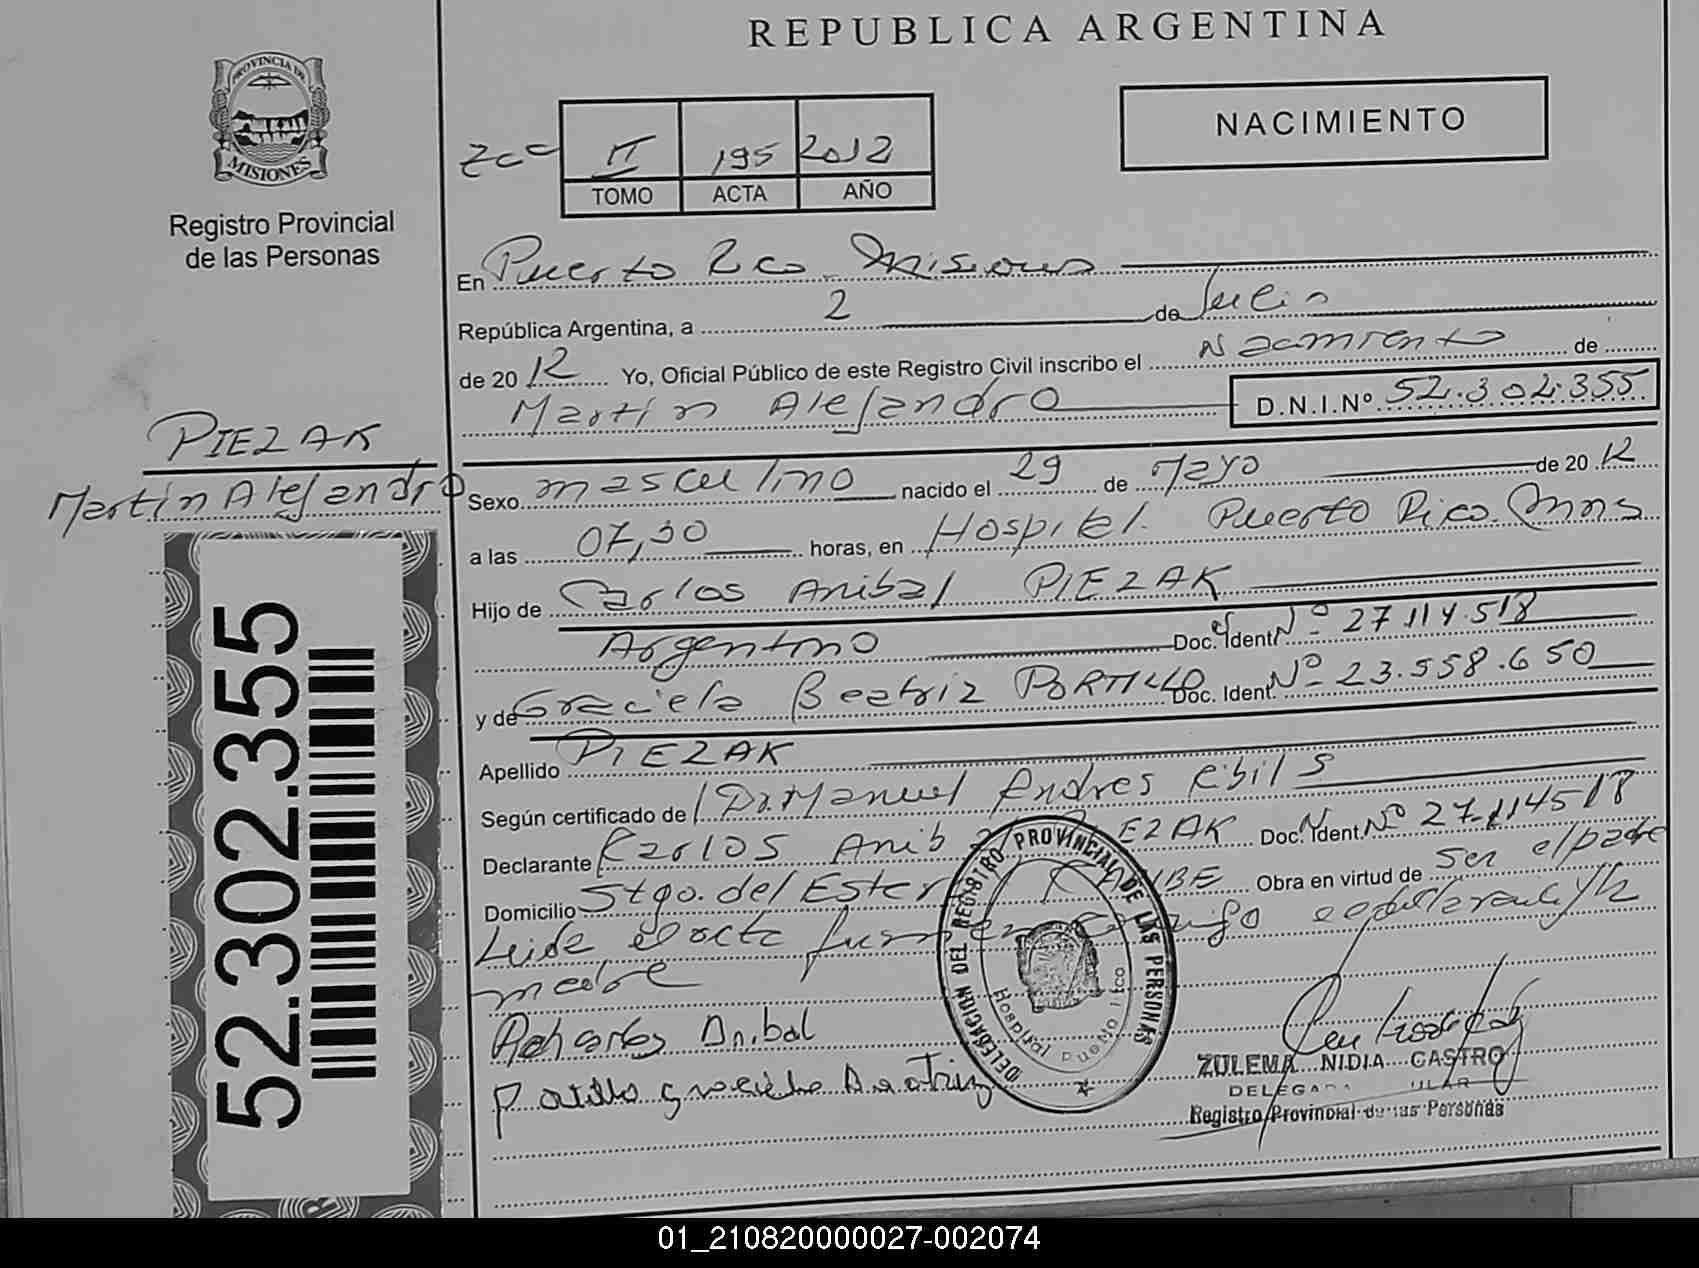 REPUBLICA ARGENTINA
PROVINCIA DE
MISIONES
Registro Provincial
de las Personas
NACIMIENTO
II 195 2012
TOMO ACTA AÑO
En Puerto Rico Misiones
República Argentina, a 2 de Julio
de 20 12 Yo, Oficial Público de este Registro Civil inscribo el Nacimiento de
Martín Alejandro D.N.I.Nº 52.302.355
PIEZAK
Martín Alejandro
Sexo masculino nacido el 29 de Mayo de 20 12
a las 07,30 horas, en Hospital Puerto Rico. Mnes
Hijo de Carlos Anibal PIEZAK
Argentino Doc. Ident. Nº 27.114.518
y de Graciela Beatriz PORTILLO Doc. Ident. Nº 23.558.650
Apellido PIEZAK
Según certificado de Dr. Manuel Andres
Declarante Carlos Anib EZAK Doc. Ident. Nº 27.114518
Domicilio Stgo. del Ester Obra en virtud de Ser el padre
Leida el acta la
madre
Carlos Anibal
Portillo Graciela Beatriz
DELEGACION DEL REGISTRO PROVINCIAL DE LAS PERSONAS
Hospital Puerto Rico
ZULEMA NIDIA CASTRO
DELEGADA
Registro Provincial de las Personas
52.302.355
01_210820000027-002074